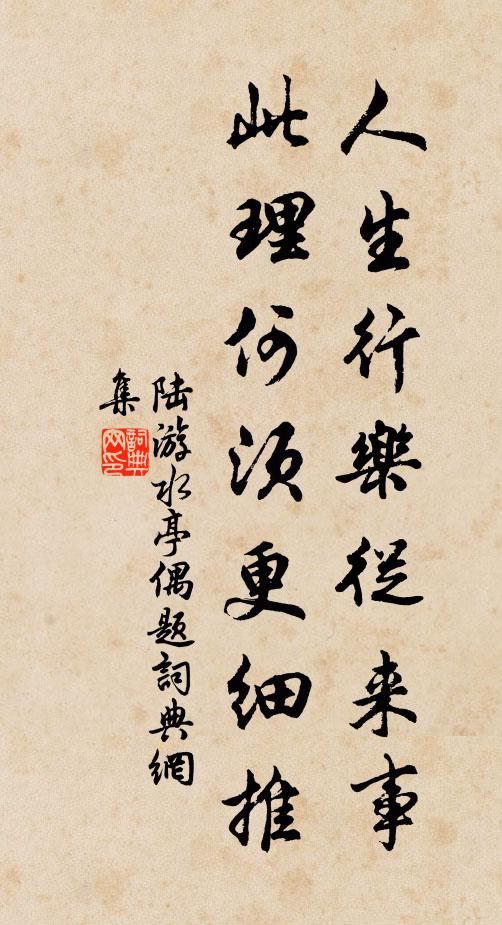 人生行樂從来事
此理何須更細推
陆游水亭偶题詞典網
集
詞典
网印